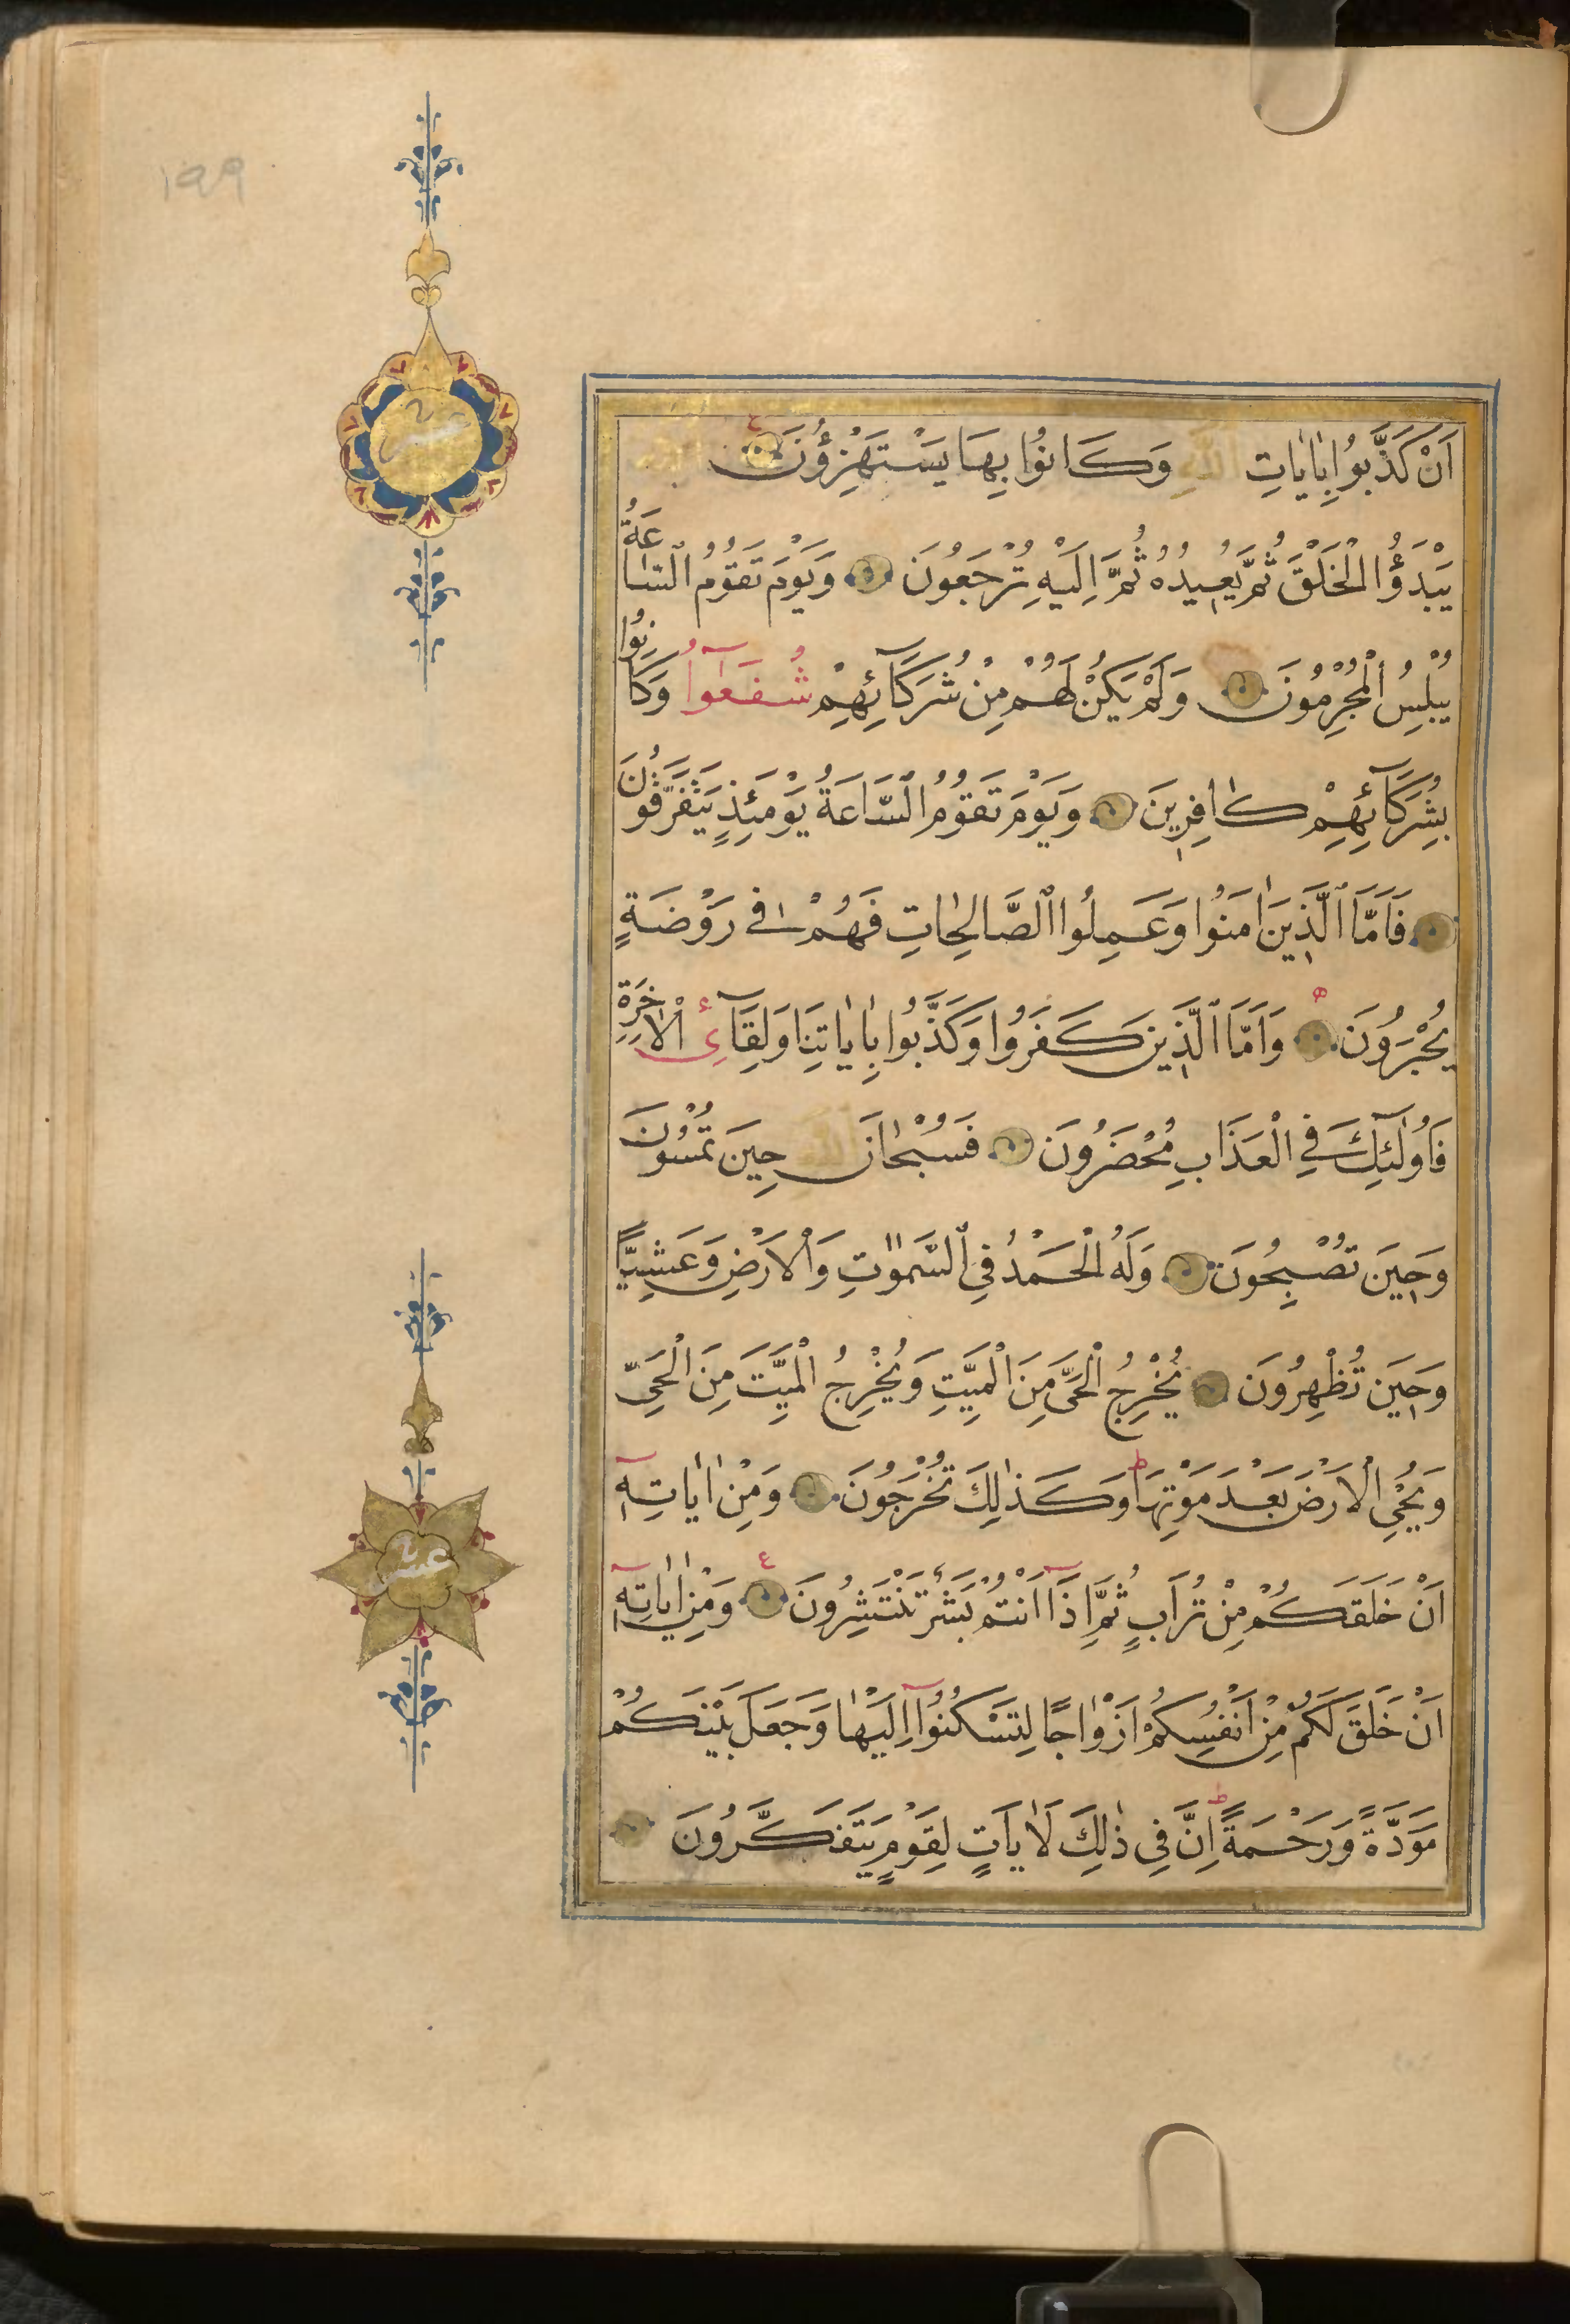 ١٩٩
اَنْ كَذَّبُوا بِاٰيَاتِ اللّٰهِ وَكَانُوا بِهَا يَسْتَهْزِؤُنَ اَللّٰهُ
يَبْدَؤُا الْخَلْقَ ثُمَّ يُعِيدُهُ ثُمَّ اِلَيْهِ تُرْجَعُونَ وَيَوْمَ تَقُومُ السَّاعَةُ
يُبْلِسُ الْمُجْرِمُونَ وَلَمْ يَكُنْ لَهُمْ مِنْ شُرَكَآئِهِمْ شُفَعَآوُا وَكَانُوا
بِشُرَكَآئِهِمْ كَافِرِينَ وَيَوْمَ تَقُومُ السَّاعَةُ يَوْمَئِذٍ يَتَفَرَّقُونَ
فَاَمَّا الَّذِينَ اٰمَنُوا وَعَمِلُوا الصَّالِحَاتِ فَهُمْ فِى رَوْضَةٍ
يُحْبَرُونَ وَاَمَّا الَّذِينَ كَفَرُوا وَكَذَّبُوا بِاٰيَاتِنَا وَلِقَآئِ الْاٰخِرَةِ
فَاُولٰئِكَ فِي الْعَذَابِ مُحْضَرُونَ فَسُبْحَانَ اللّٰهِ حِينَ تُمْسُونَ
وَحِينَ تُصْبِحُونَ وَلَهُ الْحَمْدُ فِي السَّمٰوٰتِ وَالْاَرْضِ وَعَشِيًّا
وَحِينَ تُظْهِرُونَ يُخْرِجُ الْحَىَّ مِنَ الْمَيِّتِ وَيُخْرِجُ الْمَيِّتَ مِنَ الْحَيِّ
وَيُحْيِ الْاَرْضَ بَعْدَ مَوْتِهَا ط وَكَذٰلِكَ تُخْرَجُونَ وَمِنْ اٰيَاتِهِ
اَنْ خَلَقَكُمْ مِنْ تُرَابٍ ثُمَّ اِذَا اَنْتُمْ بَشَرٌ تَنْتَشِرُونَ ع وَمِنْ اٰيَاتِهِ
اَنْ خَلَقَ لَكُمْ مِنْ اَنْفُسِكُمْ اَزْوَاجًا لِتَسْكُنُوا اِلَيْهَا وَجَعَلَ بَيْنَكُمْ
مَوَدَّةً وَرَحْمَةً ط اِنَّ فِي ذٰلِكَ لَاٰيَاتٍ لِقَوْمٍ يَتَفَكَّرُونَ
عشر